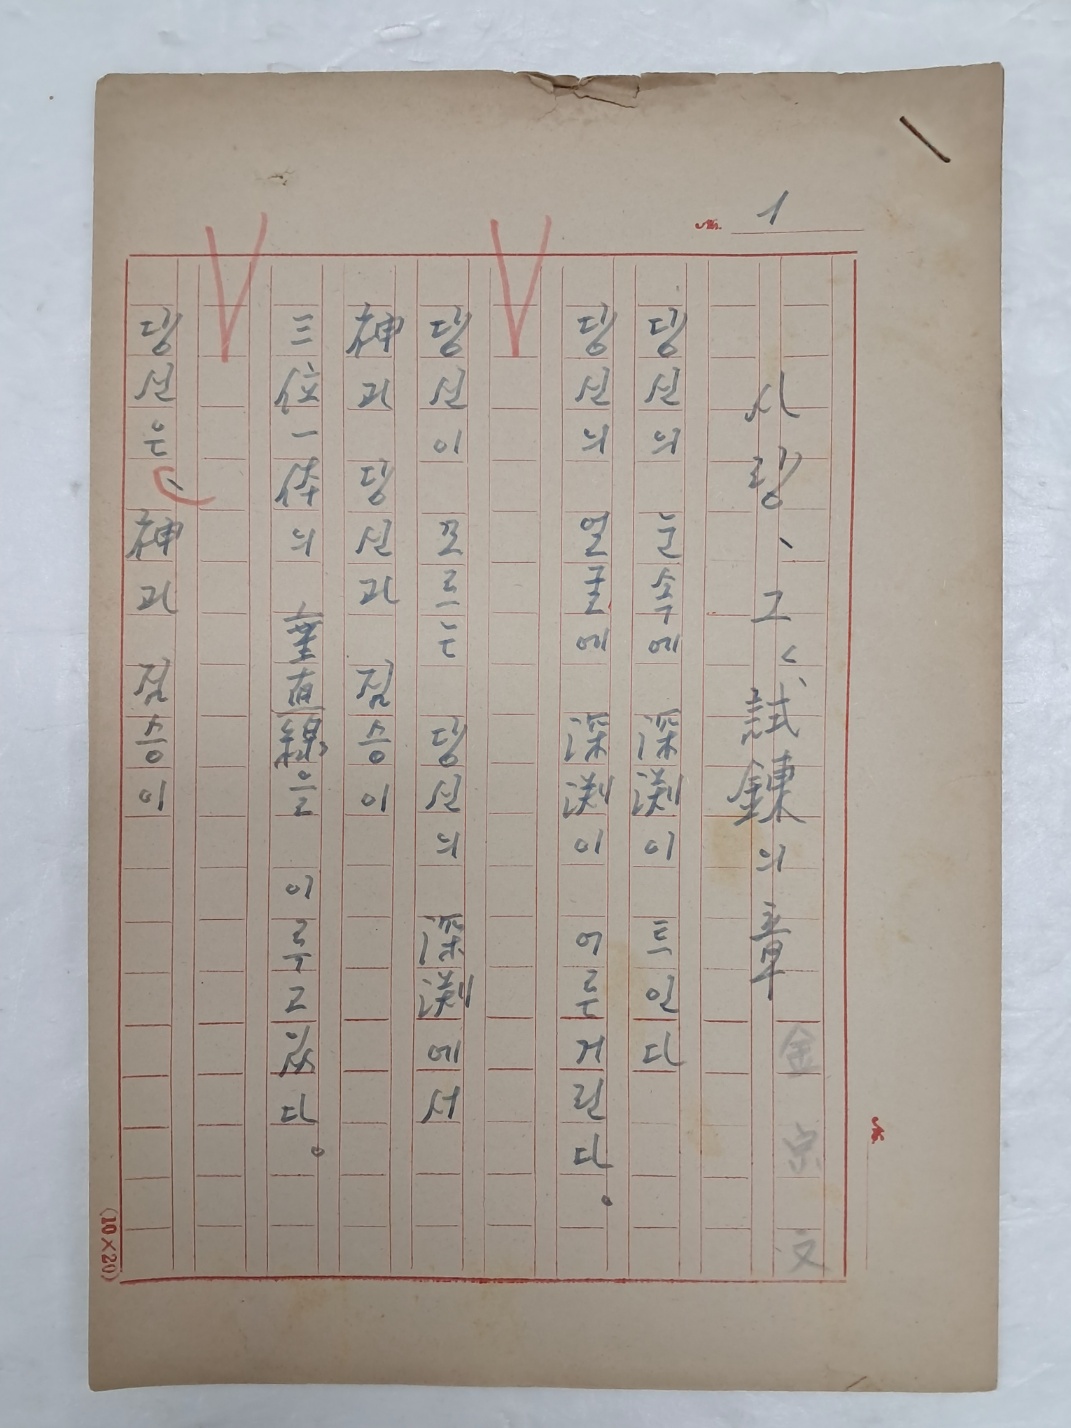 № 1
사랑、그 試鍊의 章
金宗文
당신의 눈속에 深渕이 트인다
당신의 얼굴에 深渕이 어른거린다.
당신이 모르는 당신의 深渕에서
神과 당신과 짐승이
三位一体의 垂直線을 이루고있다.
당신은、神과 짐승이
№
(10×20)